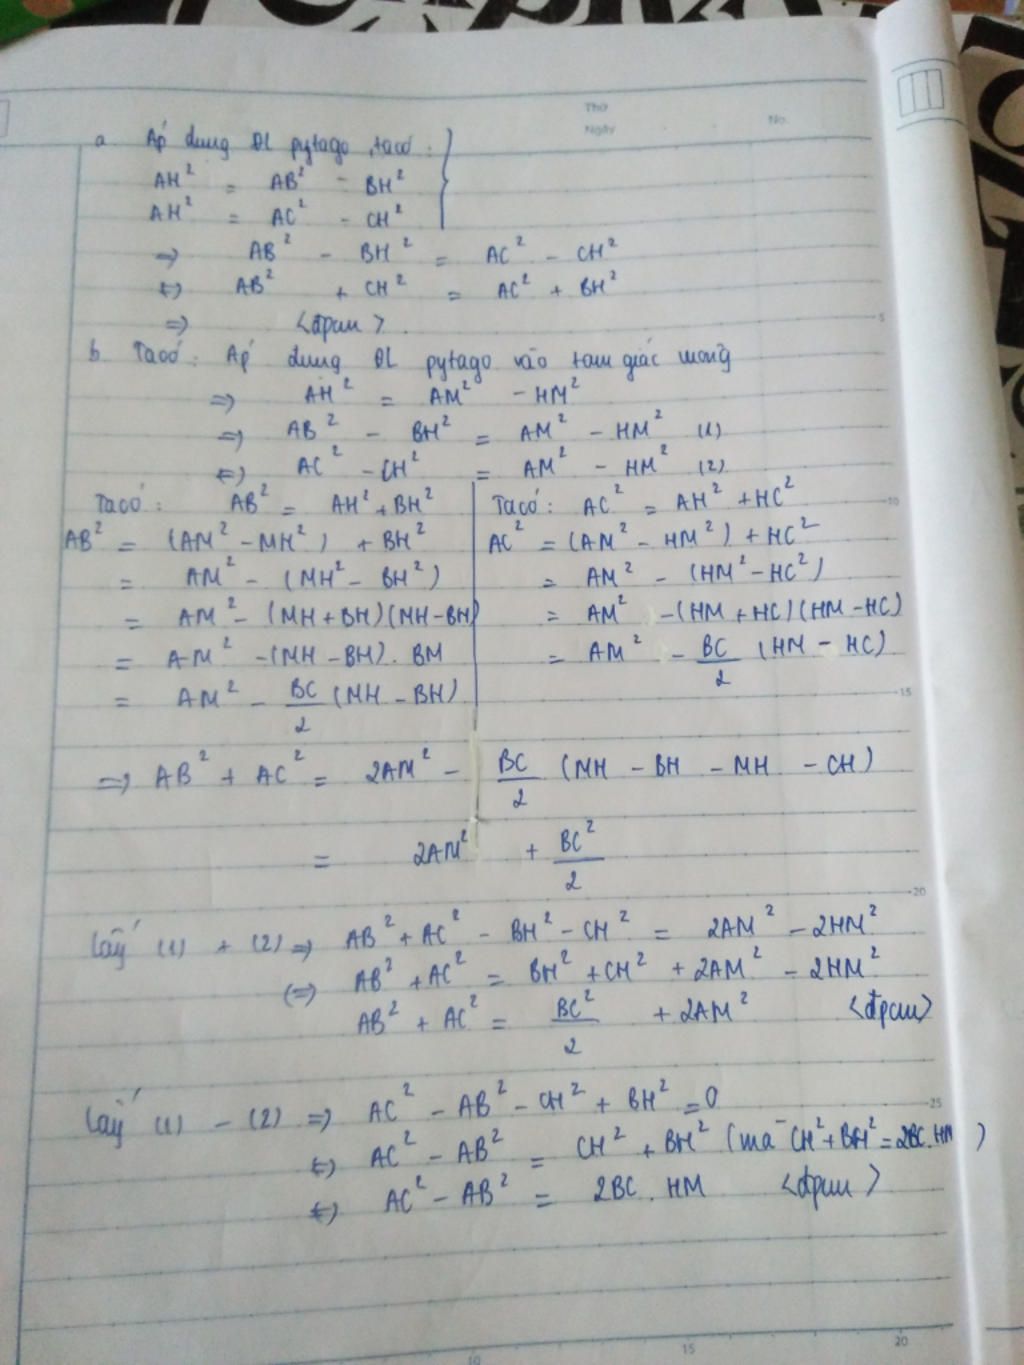 Thứ
Ngày No.
a. Áp dụng ĐL pytago, ta có:
AH² = AB² - BH²
AH² = AC² - CH²
=> AB² - BH² = AC² - CH²
<=> AB² + CH² = AC² + BH²
=> <đpcm>.
5
b. Ta có: Áp dụng ĐL pytago vào tam giác vuông
=> AH² = AM² - HM²
=> AB² - BH² = AM² - HM² (1)
<=> AC² - CH² = AM² - HM² (2)
Ta có: AB² = AH² + BH²
AB² = (AM² - MH²) + BH²
= AM² - (MH² - BH²)
= AM² - (MH + BH)(MH - BH)
= AM² - (MH - BH). BM
= AM² - BC/2 (MH - BH)
Ta có: AC² = AH² + HC²
10
AC² = (AM² - HM²) + HC²
= AM² - (HM² - HC²)
= AM² - (HM + HC)(HM - HC)
= AM² - BC/2 (HM - HC)
15
=> AB² + AC² = 2AM² - BC/2 (MH - BH - MH - CH)
= 2AM² + BC²/2
20
Lấy (1) + (2) => AB² + AC² - BH² - CH² = 2AM² - 2HM²
(=> AB² + AC² = BH² + CH² + 2AM² - 2HM²
AB² + AC² = BC²/2 + 2AM² <đpcm>
25
Lấy (1) - (2) => AC² - AB² - CH² + BH² = 0
<=> AC² - AB² = CH² + BH² (mà CH² + BH² = 2BC.HM)
<=> AC² - AB² = 2BC . HM <đpcm>
10 15 20